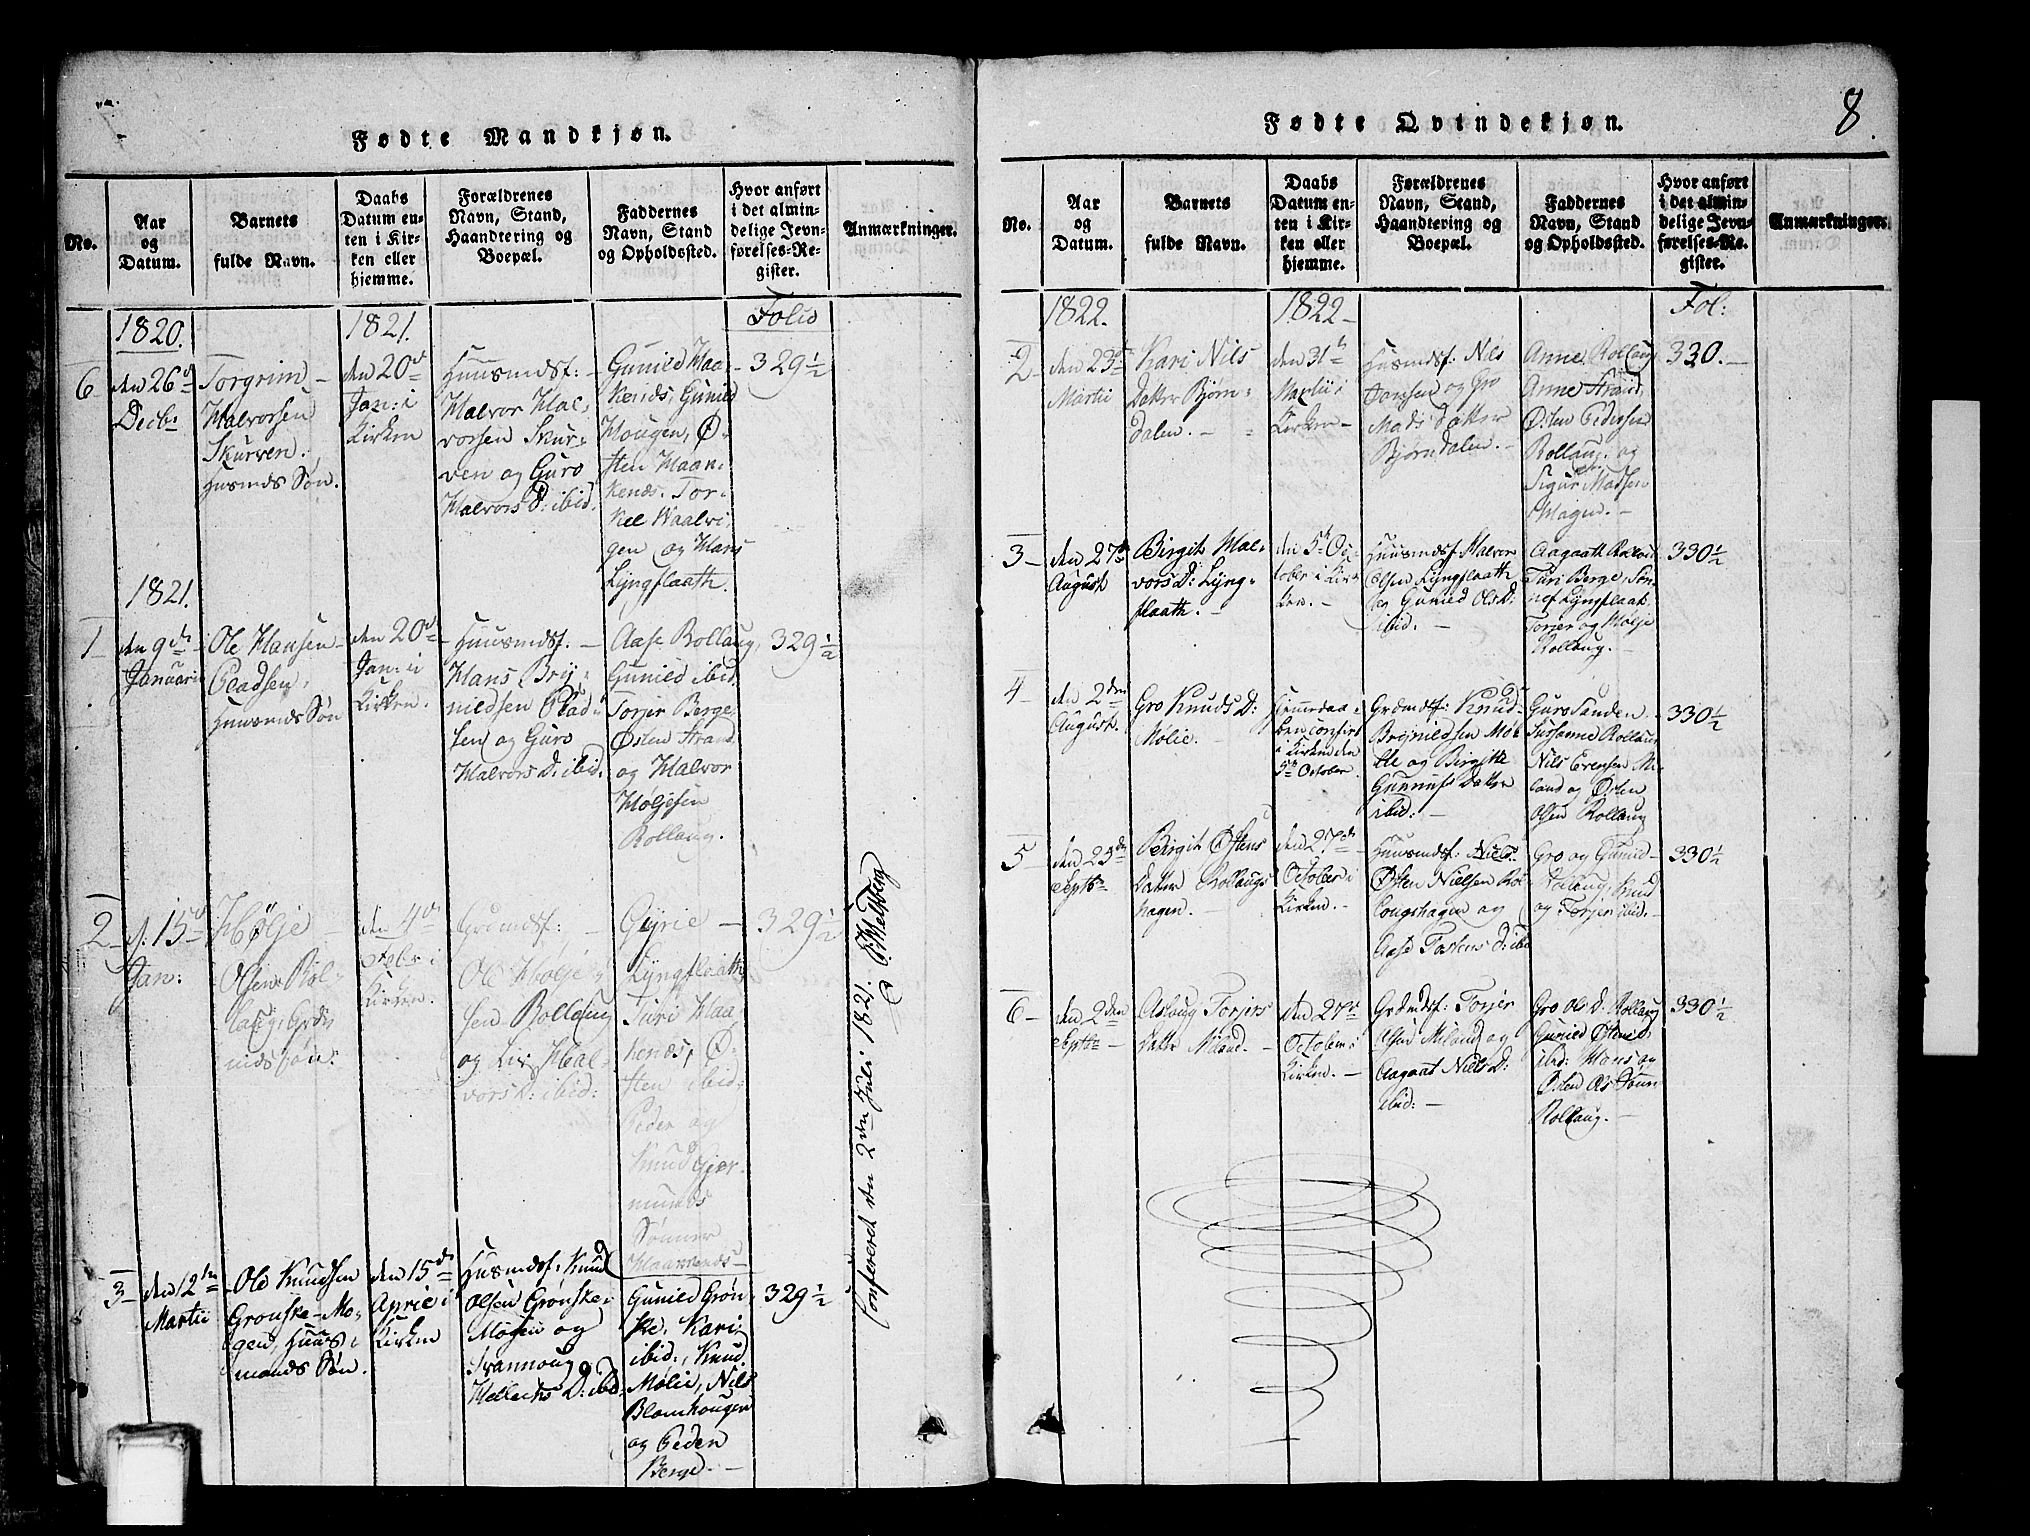 8.
Fødte Mandkjøn.
No.
Aar
og
Datum.
Barnets
fulde Navn.
Daabs
Datum en-
ten i Kir-
ken eller
hjemme.
Forældrenes
Navn, Stand,
Haandtering og
Boepæl.
Faddernes
Navn, Stand
og Opholdssted.
Hvor anført
i det almin-
delige Jevn-
førelses-Re-
gister.
Anmærkninger.
1820.
1821.
Folio
6
den 26d
Decbr
Torgrim
Halvorsen
Skurven.
Husmds Søn.
den 20d
Jan: i
Kirken
Huusmdsf:
Halvor Hal-
vorsen Skur-
ven og Guro
Halvors D: ibid.
Gunild Haa-
kends, Gunild
Hougen, Ø-
sten Haan-
kends. Tor-
kel Waalvi-
gen og Hans
Lyngflaath.
329½
1821.
1
den 9de
Januarii
Ole Hansen
Pladsen,
Huusmds Søn
den 20d
Jan: i
Kirken.
Huusmdsf.
Hans Bry-
nildsen Plad-
sen og Guro
Halvors D: ibid.
Aase Rollaug,
Gunild ibid.
Torjer Berge
Østen Strand
og Halvor
Høljesen
Rollaug.
329½
2
d. 15d
Jan:
Hølje
Olsen Rol-
laug, Grdm
mds søn:
den 4d
Febr i
Kirken.
Grdmdsf:
Ole Hølje-
sen Rollaug
og Liv Hal-
vors D: ibid:
Gyrie
Lyngflaath
Turi Haa-
kends, Ø-
sten ibid.
Peder og
Knud Gjer-
munds
Sønner
Haankends
329½
3
den 12te
Martii
Ole Knudsen
Gronske-Mo-
gen, Huus-
mands Søn.
den 15de
April i
Kirken
Husmdsf: Knud
Olsen Gronske-
Mogen og
Svannoug
Hellechs D: ibid.
Gunild Grøn-
ske, Kari
ibid:, Knud
Mølie, Nils
Blomhougen
og Peder
Berge.
329½
Confereret den 2den Juli 1821.
Fødte Qvindekjøn.
No.
Aar
og
Datum.
Barnets
fulde Navn.
Daabs
Datum en-
ten i Kir-
ken eller
hjemme.
Forældrenes
Navn, Stand,
Haandtering og
Boepæl.
Faddernes
Navn, Stand
og Opholdssted.
Hvor anført
i det almin-
delige Jevn-
førelses-Re-
gister.
Anmærkninger.
1822.
1822
Fol:
2
den 23de
Martii
Kari Nils
Datter Bjørn-
dalen.
den 31te
Martii i
Kirken
Husmdsf: Nils
Jansen og Gro
Mads datter
Bjørndalen.
Anne Rollaug
Anne Strand,
Østen Pedersen
Rollaug. og
Sigur Madsen
Hagen.
330.
3
den 27de
August
Birgit Hal-
vors D: Lyng-
flaath.
den 5te Oc-
tober i Kir-
ken.
Huusmdsf. Halvor
Olsen Lyngflaath
og Gunild Ols D:
ibid.
Aagaath Rollaug
Turi Berge, Tor-
Lyngflaat.
Torjer og Hølje
Rollaug.
330½
4
den 2den
August.
Gro Knuds D:
Mølie.
Hjemmedaa-
ben confirt
i Kirken den
5te October.
Grdmdsf: Knud
Brynildsen Mø-
lie og Birgitte
Gunnufs Datter
ibid:
Guro Sanden
Susanne Rollaug
Nils Evensen Mi-
land og Østen
Olsen Rollaug
330½
5
den 25de
Septbr
Birgit Østens
Datter Rollaugs
hagen.
den 27de
October i
Kirken.
Huusmdsf: Niels
Østen Nielsen Rol-
lougshagen og
Aase Tostens D: ibid
Gro og Gunild
Rollaug, Knud
og Torjer ibid.
330½
6
den 2den
Septbr
Aslaug Torjers
datter Milaud.
den 27de
October i
Kirken.
Grdmdsf: Torjer
Olsen Miland og
Aagaat Niels D:
ibid:
Gro Ols D. Rollaug
Gunild Østens D
ibid: Hans og
Østen Ols Sønner
Rollaug.
330½